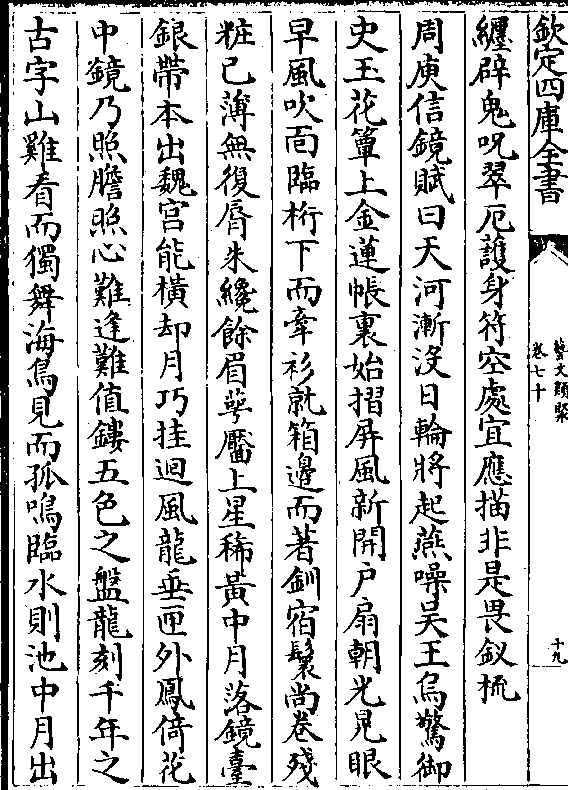 欽定四庫全書
藝文類聚
卷七十
十九
纏辟鬼呪翠厄護身符空處宜應描非是畏釵梳
周庾信鏡賦曰天河漸没日輪將起燕噪吴王烏驚御
史玉花簟上金蓮帳裏始摺屏風新開戶扇朝光晃眼
早風吹面臨桁下而牽衫就箱邊而著釧宿鬟尚卷殘
粧已薄無復脣朱纔餘眉萼靨上星稀黃中月落鏡臺
銀帶本出魏宫能橫却月巧挂迴風龍垂匣外鳳倚花
中鏡乃照膽照心難逢難值鏤五色之盤龍刻千年之
古字山雞看而獨舞海鳥見而孤鳴臨水則池中月出